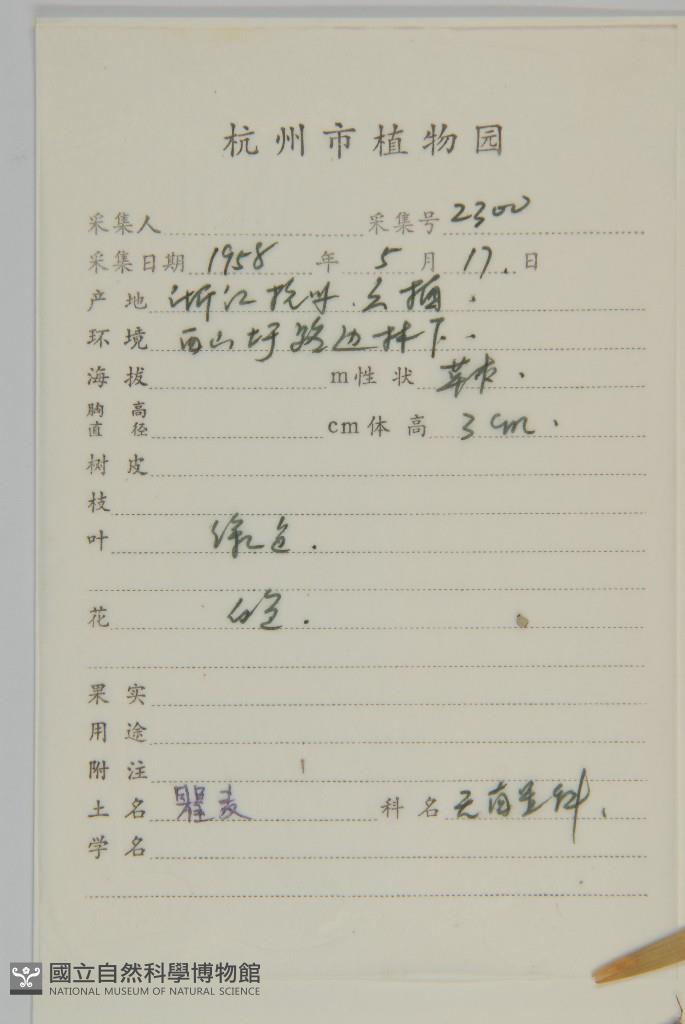 杭州市植物园
采集人 采集号 2300
采集日期 1958 年 5 月 17. 日
产 地 浙江
环 境 西山坪路边林下.
海 拔 m性 状 草本.
胸 高
直 径 cm体 高 3 cm.
树 皮
枝
叶 绿色.
花 白色.
果 实
用 途
附 注
土 名 瞿麦
科 名 天南星科.
学 名
國立自然科學博物館
NATIONAL MUSEUM OF NATURAL SCIENCE